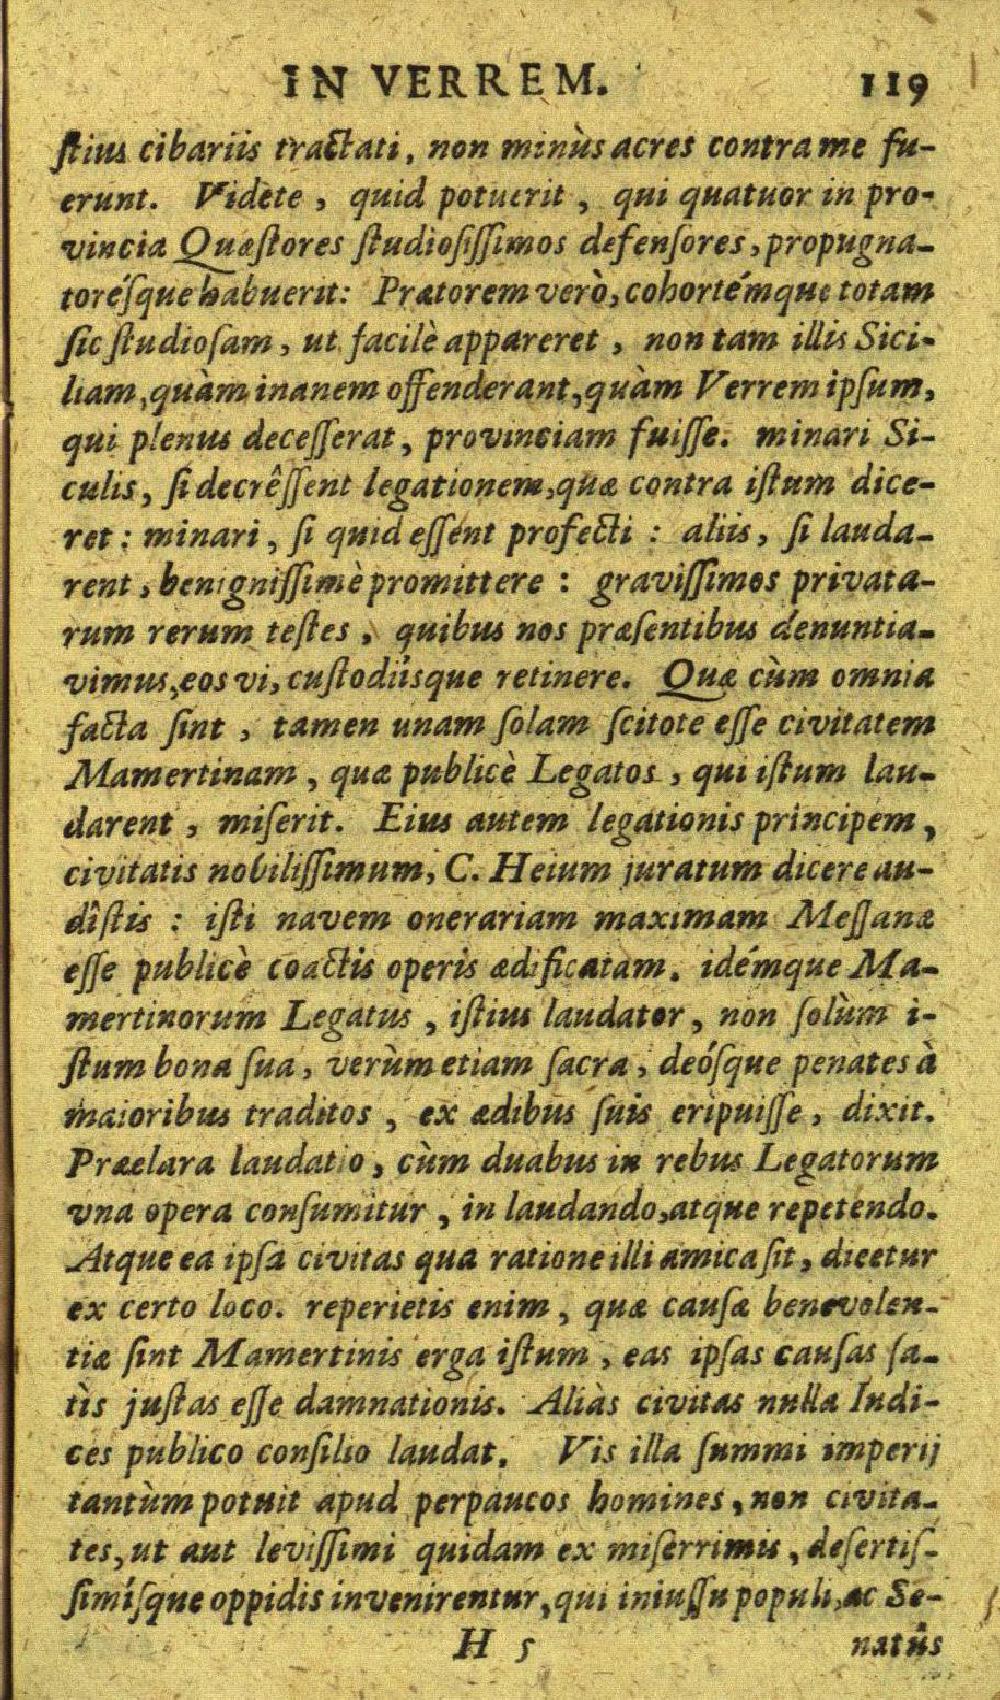 IN VERREM. 119
ſtius cibariis tractati, non minùs acres contra me fu-
erunt. Vidète, quid potuerit, qui quatuor in pro-
vincia Quæſtores ſtudioſiſſimos defenſores, propugna-
toréſque habuerit: Prætorem verò, cohortémque totam
ſic ſtudioſam, ut facilè appareret, non tam illis Sici-
liam, quàm inanem offenderant, quàm Verrem ipſum,
qui plenus deceſſerat, provinciam fuiſſe. minari Si-
culis, ſi decrêſſent legationem, quæ contra iſtum dice-
ret: minari, ſi quid eſſent profecti: aliis, ſi lauda-
rent, benigniſſimè promittere: graviſſimos privata-
rum rerum teſtes, quibus nos præſentibus denuntia-
vimus, eos vi, cuſtodiíſque retinere. Quæ cùm omnia
facta ſint, tamen unam ſolam ſcitote eſſe civitatem
Mamertinam, quæ publicè Legatos, qui iſtum lau-
darent, miſerit. Eius autem legationis principem,
civitatis nobiliſſimum, C. Heium juratum dicere au-
dîſtis: iſti navem onerariam maximam Meſſanæ
eſſe publicè coactis operis ædificatam. idémque Ma-
mertinorum Legatus, iſtius laudator, non ſolùm i-
ſtum bona ſua, verùm etiam ſacra, deóſque penates à
maioribus traditos, ex ædibus ſuis eripuiſſe, dixit.
Præclara laudatio, cùm duabus in rebus Legatorum
vna opera conſumitur, in laudando, atque repetendo.
Atque ea ipſa civitas qua ratione illi amica ſit, dicetur
ex certo loco. reperietis enim, quæ cauſæ benevolen-
tiæ ſint Mamertinis erga iſtum, eas ipſas cauſas ſa-
tìs juſtas eſſe damnationis. Aliàs civitas nulla Iudi-
ces publico conſilio laudat. Vis illa ſummi imperij
tantùm potuit apud perpaucos homines, non civita-
tes, ut aut leviſſimi quidam ex miſerrimis, deſertiſ-
ſimíſque oppidis invenirentur, qui iniuſſu populi, ac Se-
H 5 natûs